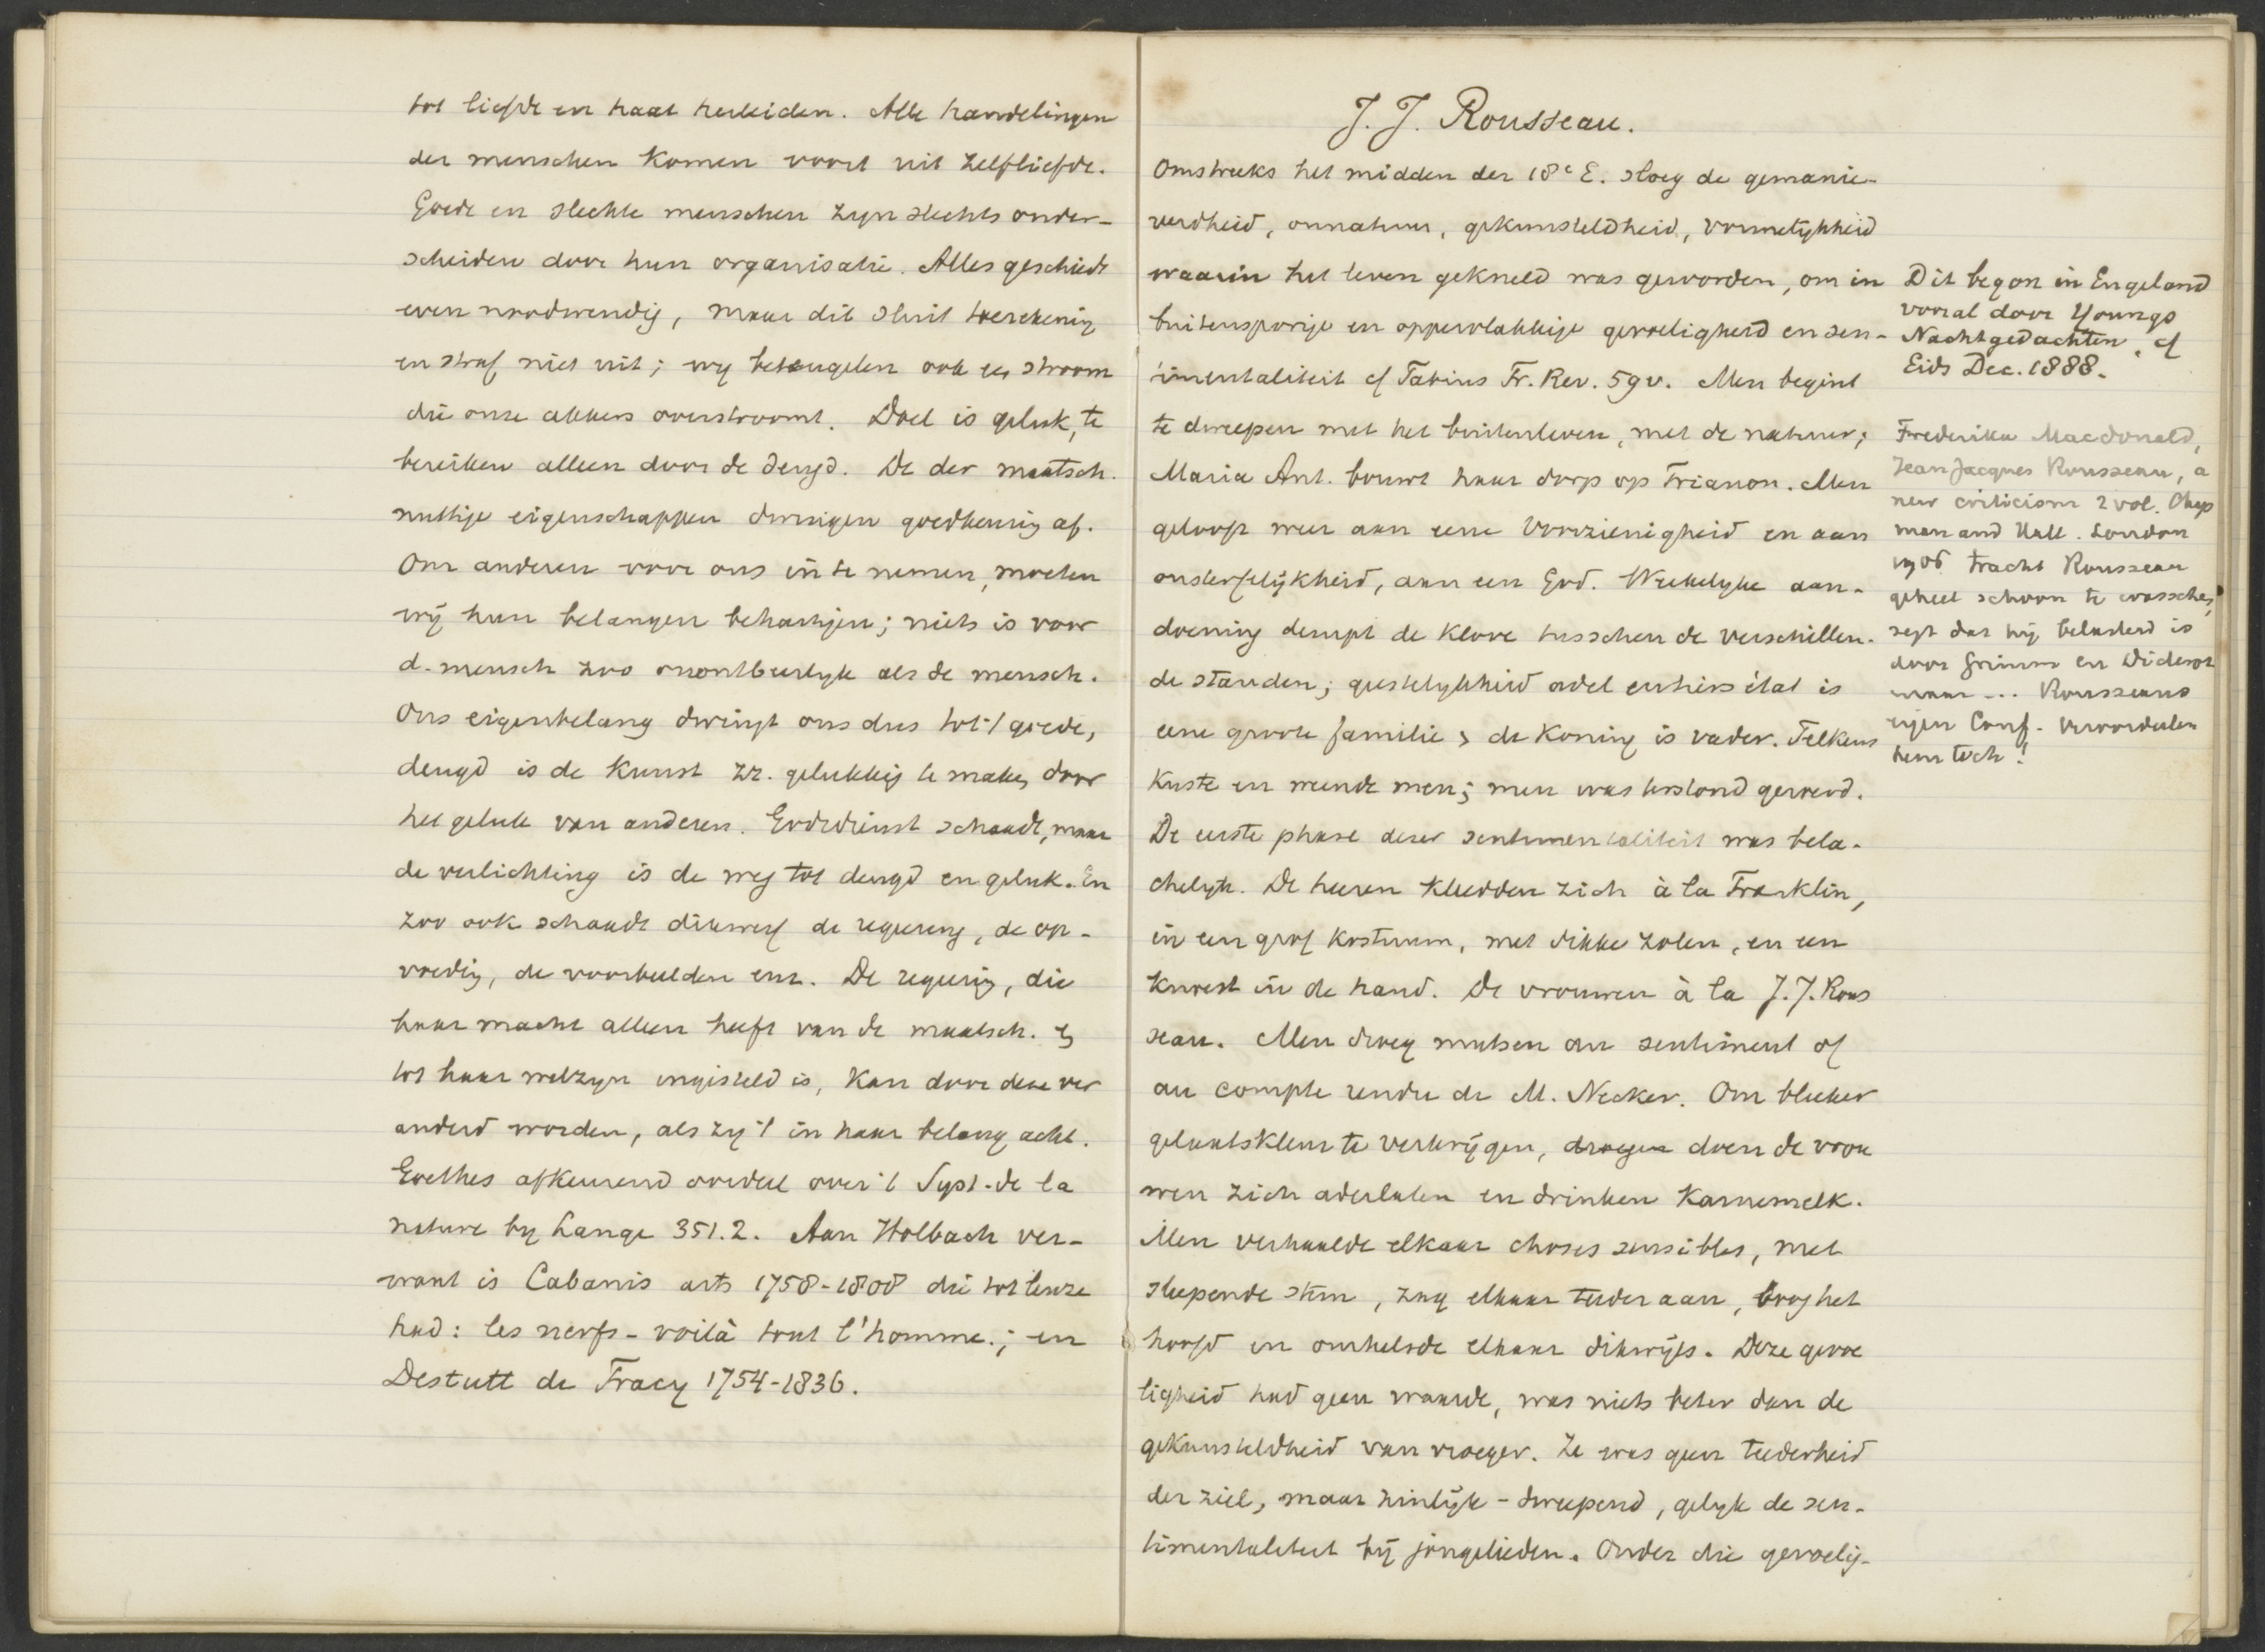 tot liefde en haat herleiden. Alle handelingen
der menschen komen voort uit zelfliefde.
Goede en slechte menschen zyn slechts onder-
scheiden door hun organisatie. Alles geschiedt
even noodwendig, maar dit sluit toerekening
en straf niet uit; wy beteugelen ook een stroom
die onze akkers overstroomt. Doel is geluk, te
bereiken alleen door de deugd. De der maatsch.
nuttige eigenschappen dwingen goedkeuring af.
Om anderen voor ons in te nemen, moeten
wij hun belangen behartigen; niets is voor
d. mensch zoo onontbeerlyk als de mensch.
Ons eigenbelang dwingt ons dus tot 't goede,
deugd is de kunst zz. gelukkig te maken door
het geluk van anderen. Godsdienst schaadt, maar
de verlichting is de weg tot deugd en geluk. En
zoo ook schaadt dikwerf de regeering, de op-
voeding, de voorbeelden enz. De regeering, die
haar macht alleen heeft van de maatsch. en
tot haar welzyn ingesteld is, kan door deze ver
anderd worden, als zy 't in haar belang acht.
Goethes afkeurend oordeel over 't Syst. de la
nature by Lange 351.2. Aan Holbach ver-
want is Cabanis arts 1758-1808 die tot leuze
had: les nerfs - voilà tout l'homme.; en
Destutt de Tracy 1754-1836.
J. J. Rousseau.
Omstreeks het midden der 18e E. sloeg de gemanie-
reerdheid, onnatuur, gekunsteldheid, vormelykheid
waarin het leven gekneld was geworden, om in
buitensporige en oppervlakkige gevoeligheid en sen-
timentaliteit cf Taine Fr. Rev. 59v. Men begint
te dweepen met het buitenleven, met de natuur;
Maria Ant. bouwt haar dorp op Trianon. Men
gelooft weer aan eene Voorzienigheid en aan
onsterfelijkheid, aan een God. Weekelyke aan-
doening dempt de klove tusschen de verschillen-
de standen; geestelykheid adel en tiers état is
eene groote familie, de koning is vader. Telkens
kuste en weende men; men was terstond geroerd.
De eerste phase dezer sentimentaliteit was bela-
chelyk. De heeren kleedden zich à la Franklin,
in een grof kostuum, met dikke zolen, en een
knoest in de hand. De vrouwen à la J.J. Rous
seau. Men droeg mutsen au sentiment of
au compte rendu de M. Necker. Om bleeker
gelaatskleur te verkrijgen, droegen doen de vrou
wen zich aderlaten en drinken karnemelk.
Men verhaalde elkaar choses sensibles, met
sleepende stem, zag elkaar teeder aan, boog het
hoofd en omhelsde elkaar dikwijls. Deze gevoe
ligheid had geen waarde, was niets beter dan de
gekunsteldheid van vroeger. Ze was geen teederheid
der ziel, maar zinlijk - dweepend, gelyk de sen-
timentaliteit bij jongelieden. Onder die gevoelig-
Dit begon in Engeland
vooral door Youngs
Nachtgedachten, cf
Eids Dec. 1888.
Frederika Macdonald,
Jean Jacques Rousseau, a
new criticism 2 vol. Chap
man and Hall. London
1906 tracht Rousseau
geheel schoon te wasschen,
zegt dat hij belasterd is
door Grimm en Diderot
maar ... Rousseaus
eigen Conf. veroordeelen
hem toch!